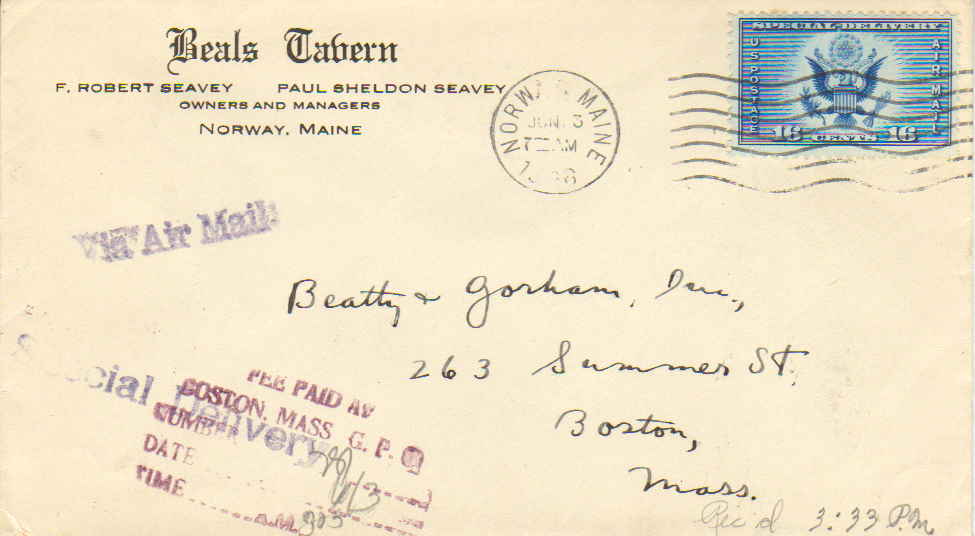 Beals Tavern
F. ROBERT SEAVEY PAUL SHELDON SEAVEY
OWNERS AND MANAGERS
NORWAY, MAINE
NORWAY MAINE
JUN 3
7 AM
SPECIAL DELIVERY
US POSTAGE
AIR MAIL
16 CENTS 16
Via Air Mail
Beatty & Gorham, Inc.,
263 Summer St.
Boston,
Mass.
Special Delivery
FEE PAID AT
BOSTON, MASS. G. P. O.
NUMBER
DATE 6/3
TIME A.M. 303
Rec'd 3:33 P.M.